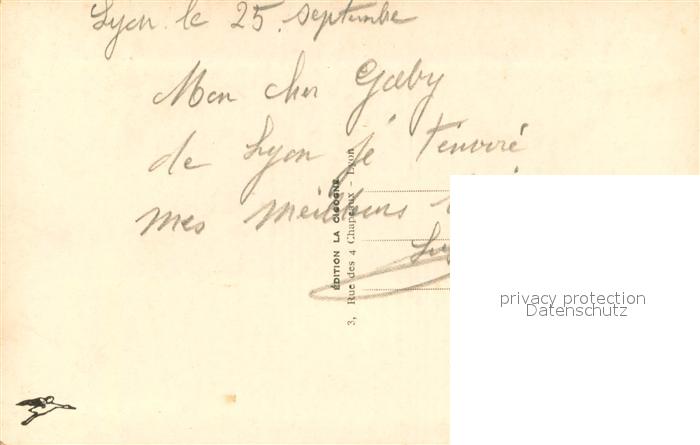 Lyon le 25 septembre
Mon cher Gaby
de Lyon je t'envoie
mes meilleurs
ÉDITION LA CIGOGNE
3, Rue des 4 Chapeaux - Lyon
privacy protection
Datenschutz